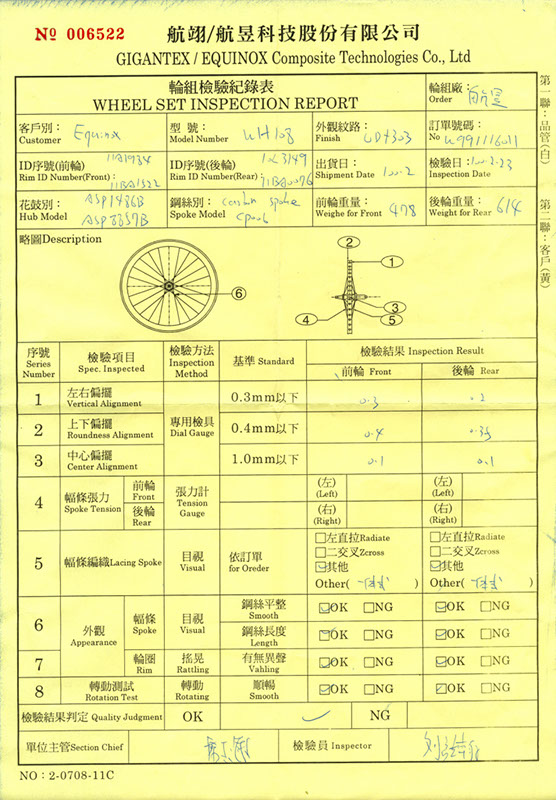 № 006522
航翊/航昱科技股份有限公司
GIGANTEX / EQUINOX Composite Technologies Co., Ltd
輪組檢驗紀錄表
WHEEL SET INSPECTION REPORT
輪組廠：
Order 航昱
客戶別：
Customer Equinox
型 號：
Model Number WH108
外觀紋路：
Finish UD+303
訂單號碼：
No
ID序號(前輪) 11A1934
Rim ID Number(Front): 11BA1322
ID序號(後輪)
Rim ID Number(Rear):
出貨日：
Shipment Date 100.2
檢驗日：100.2.23
Inspection Date
花鼓別： ASP1486B
Hub Model ASP8857B
鋼絲別： carbon spoke
Spoke Model
前輪重量：
Weighe for Front 478
後輪重量：
Weight for Rear 614
第一聯：品管(白)
第二聯：客戶(黃)
略圖Description
① ② ③ ④ ⑤ ⑥
序號
Series
Number
檢驗項目
Spec. Inspected
檢驗方法
Inspection
Method
基準 Standard
檢驗結果 Inspection Result
前輪 Front
後輪 Rear
1 左右偏擺
Vertical Alignment
0.3mm以下 0.3 0.2
2 上下偏擺
Roundness Alignment
專用檢具
Dial Gauge
0.4mm以下 0.4 0.35
3 中心偏擺
Center Alignment
1.0mm以下 0.1 0.1
4 幅條張力
Spoke Tension
前輪
Front
後輪
Rear
張力計
Tension
Gauge
(左)
(Left)
(右)
(Right)
(左)
(Left)
(右)
(Right)
5 幅條編織Lacing Spoke
目視
Visual
依訂單
for Oreder
□左直拉Radiate
□二交叉Zcross
☑其他
Other( )
□左直拉Radiate
□二交叉Zcross
☑其他
Other( )
外觀
Appearance
6 幅條
Spoke
目視
Visual
鋼絲平整
Smooth
☑OK □NG ☑OK □NG
鋼絲長度
Length
☑OK □NG ☑OK □NG
7 輪圈
Rim
搖晃
Rattling
有無異聲
Vahling
☑OK □NG ☑OK □NG
8 轉動測試
Rotation Test
轉動
Rotating
順暢
Smooth
☑OK □NG ☑OK □NG
檢驗結果判定 Quality Judgment OK ✓ NG
單位主管Section Chief
檢驗員 Inspector
NO：2-0708-11C